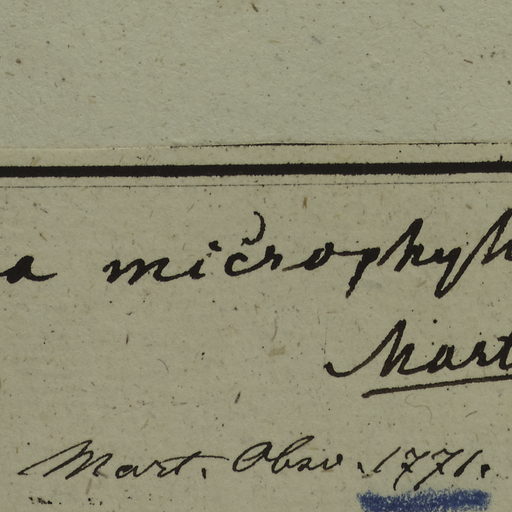 a microphyl
Mart
Mart. Obsv. 1771.